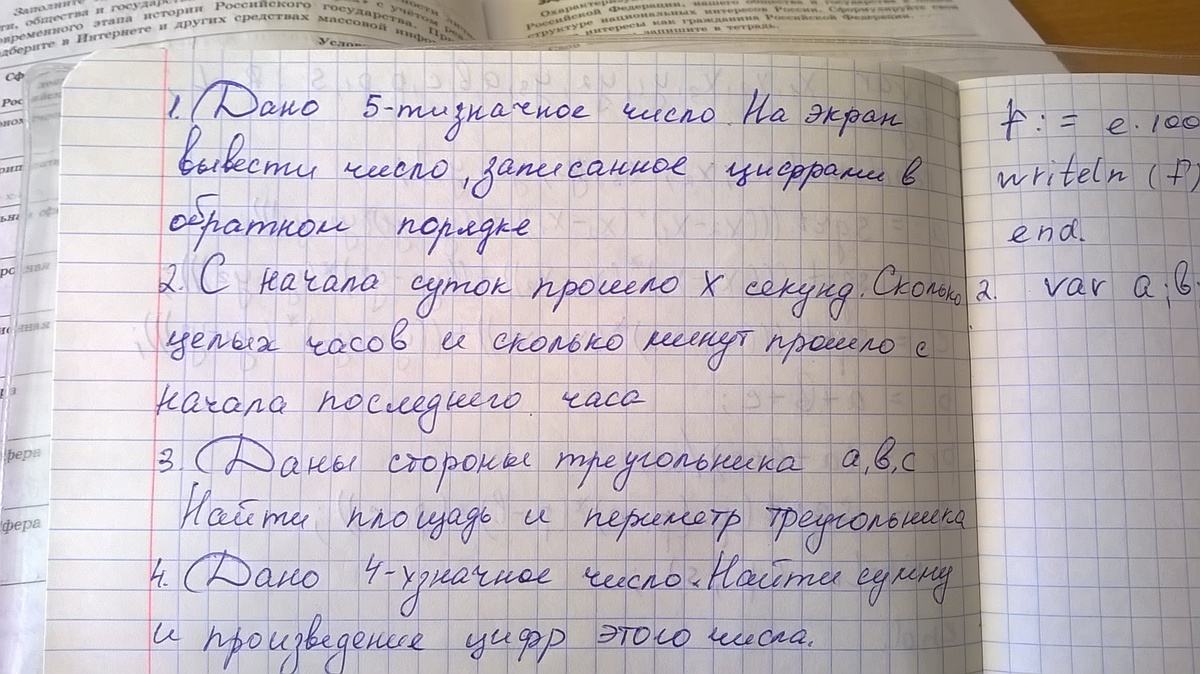 Заполните
ти, общества и государства с учётом
овременного этапа истории Российского государства. При
одберите в Интернете и других средствах массовой инфор
Российской Федерации, нашего общества и государства в
структуре национальных интересов России. Сформулируйте свои
интересы как гражданина Российской Федерации.
запишите в тетрадь.
1. Дано 5-тизначное число. На экран
вывести число, записанное цифрами в
обратном порядке
2. С начала суток прошло X секунд. Сколько
целых часов и сколько минут прошло с
начала последнего часа
3. Даны стороны треугольника a, b, c
Найти площадь и периметр треугольника
4. Дано 4-хзначное число. Найти сумму
и произведение цифр этого числа.
f := e.100
writeln (f)
end.
2. var a, b
фера
фера